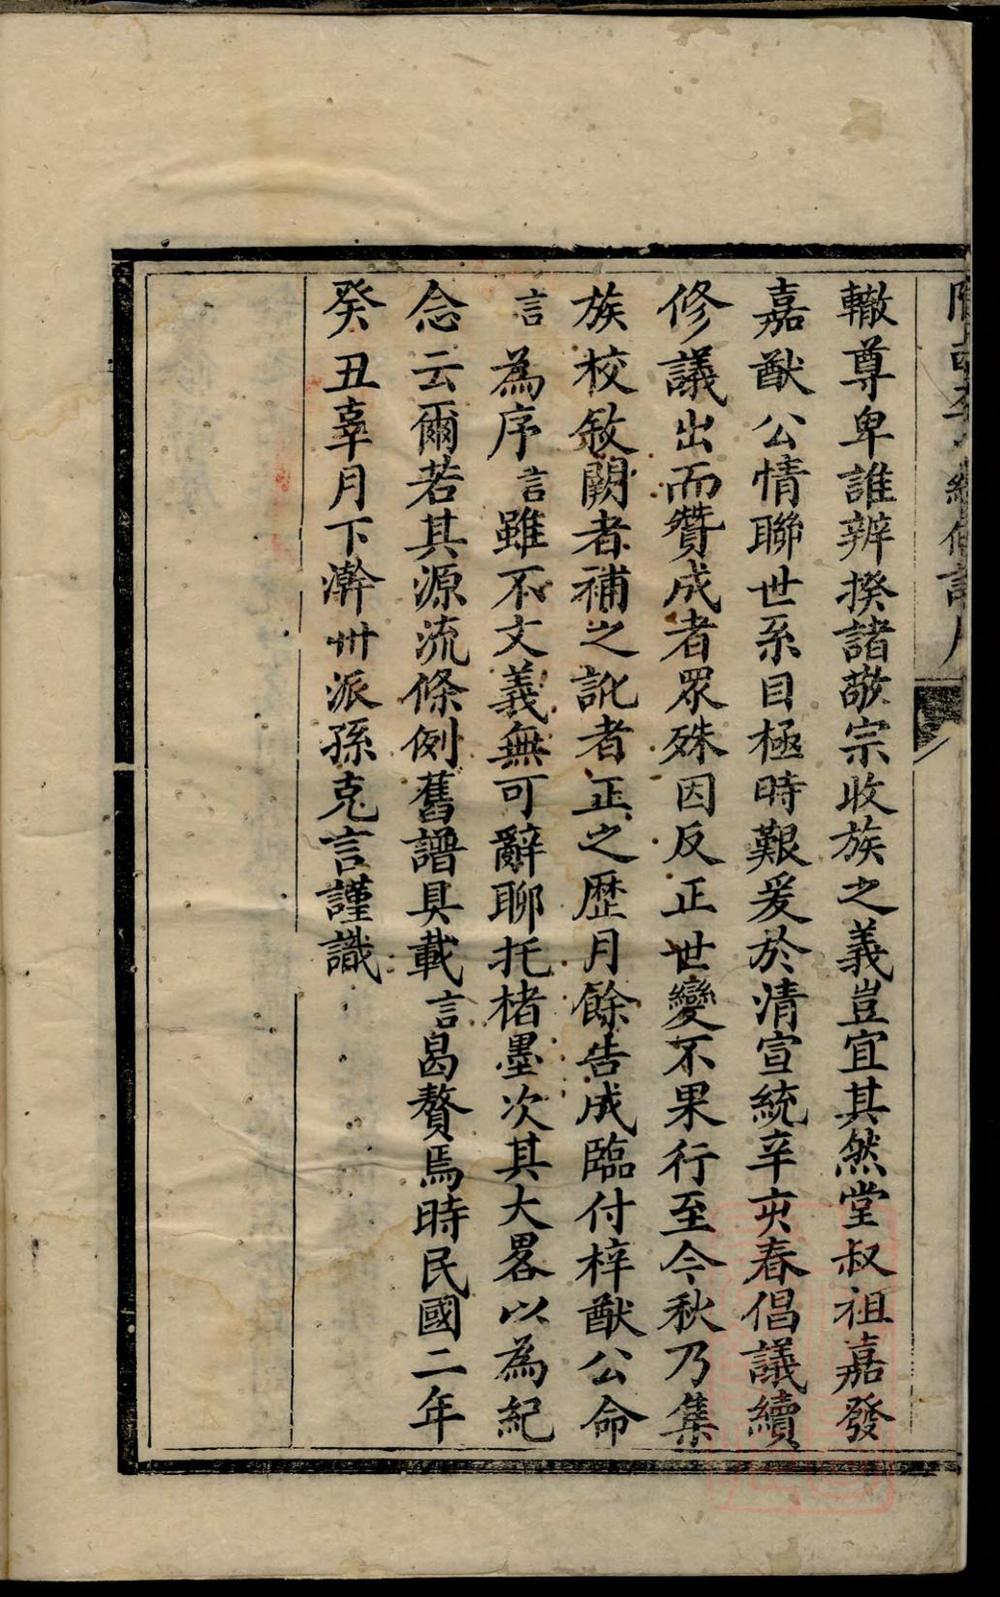 轍尊卑誰辨揆諸敬宗收族之義豈宜其然堂叔祖嘉發
嘉猷公情聯世系目極時艱爰於清宣統辛亥春倡議續
修議出而贊成者眾殊因反正世變不果行至今秋乃集
族校敘闕者補之訛者正之歷月餘告成臨付梓猷公命
言為序言雖不文義無可辭聊托楮墨次其大畧以為紀
念云爾若其源流條例舊譜具載言曷贅焉時民國二年
癸丑辜月下澣卅派孫克言謹識